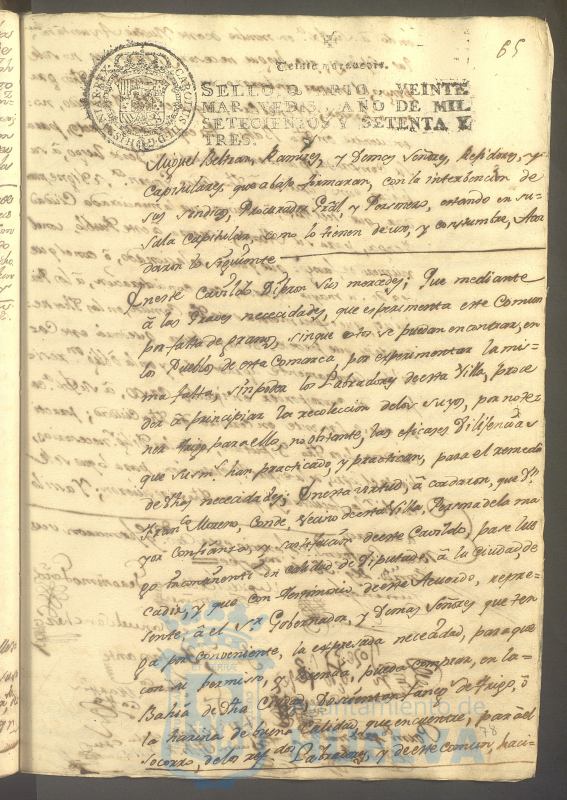 65
Veinte maravedis.
SELLO QUARTO, VEINTE
MARAVEDIS, AÑO DE MIL
SETECIENTOS Y SETENTA Y
TRES.
Miguel Beltran, Ramires, y Demas Señores Rexidores, y
Capitulares, que abajo firmaran, con la interbencion de
sus Sindicos, Procurador Gral, y Personero, estando en su
Sala Capitular como lo tienen de uso, y costumbre, Acor
daron lo siguiente
En este Cavildo Dijeron sus mercedes, Que mediante
â las Graves necesidades, que esperimenta este Comun
por falta de granos, sin que estos se puedan encontrar, en
los Pueblos de esta Comarca, por esperimentar la mis-
ma falta, sin poder los Labradores de esta Villa, proce
der â principiar la recoleccion de los suyos, por no te-
ner trigo para ello, no obstante, las eficases Diligencias
que sus mrs. han practicado, y practican, para el remedio
de dhas necesidades; En esta virtud, acordaron, que Dn.
Franco. Moreno, Conde, Vecino de esta Villa, Persona de la ma
yor Confianza, y satisfacion de este Cavildo, pase lue
go incontinenti en calidad de Diputado, â la Ciudad de
Cadiz, y que con testimonio de este Acuerdo, repre-
sente â el Sr. Gobernador, y Demas Señores que ten
ga por conveniente, la expresada necesidad, para que
con su permiso, y Lisencia, pueda comprar, en la
Bahia de dha Ciudad fanegs. de trigo, ô
la harina de buena calidad, que encuentre, para el
socorro, de los Labradores, y de este comun, haci-
Ayuntamiento de
78